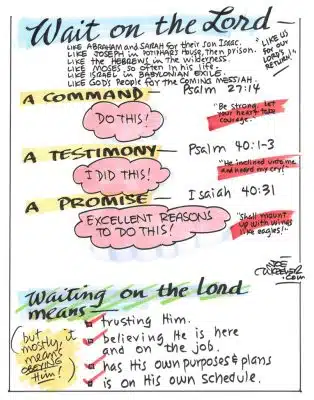 Wait on the Lord—
LIKE ABRAHAM and SARAH for their son Isaac.
LIKE JOSEPH in POTIPHAR'S HOUSE, then prison.
LIKE the HEBREWS in the wilderness.
LIKE MOSES so often in his life.
LIKE ISRAEL in BABYLONIAN EXILE.
LIKE GOD'S PEOPLE for the COMING MESSIAH.
"LIKE US
FOR OUR
LORD'S
RETURN!"
A COMMAND— Psalm 27:14
DO THIS!
"Be strong, let
your heart take
courage."
A TESTIMONY— Psalm 40:1-3
I DID THIS!
"He inclined unto me
and heard my cry!"
A PROMISE— Isaiah 40:31
EXCELLENT REASONS
TO DO THIS!
"Shall mount
up with wings
like eagles!"
Waiting on the Lord
means—
trusting Him.
believing He is here
and on the job.
has His own purposes & plans
is on His own schedule.
(but
mostly, it
means
OBEYING
Him!)